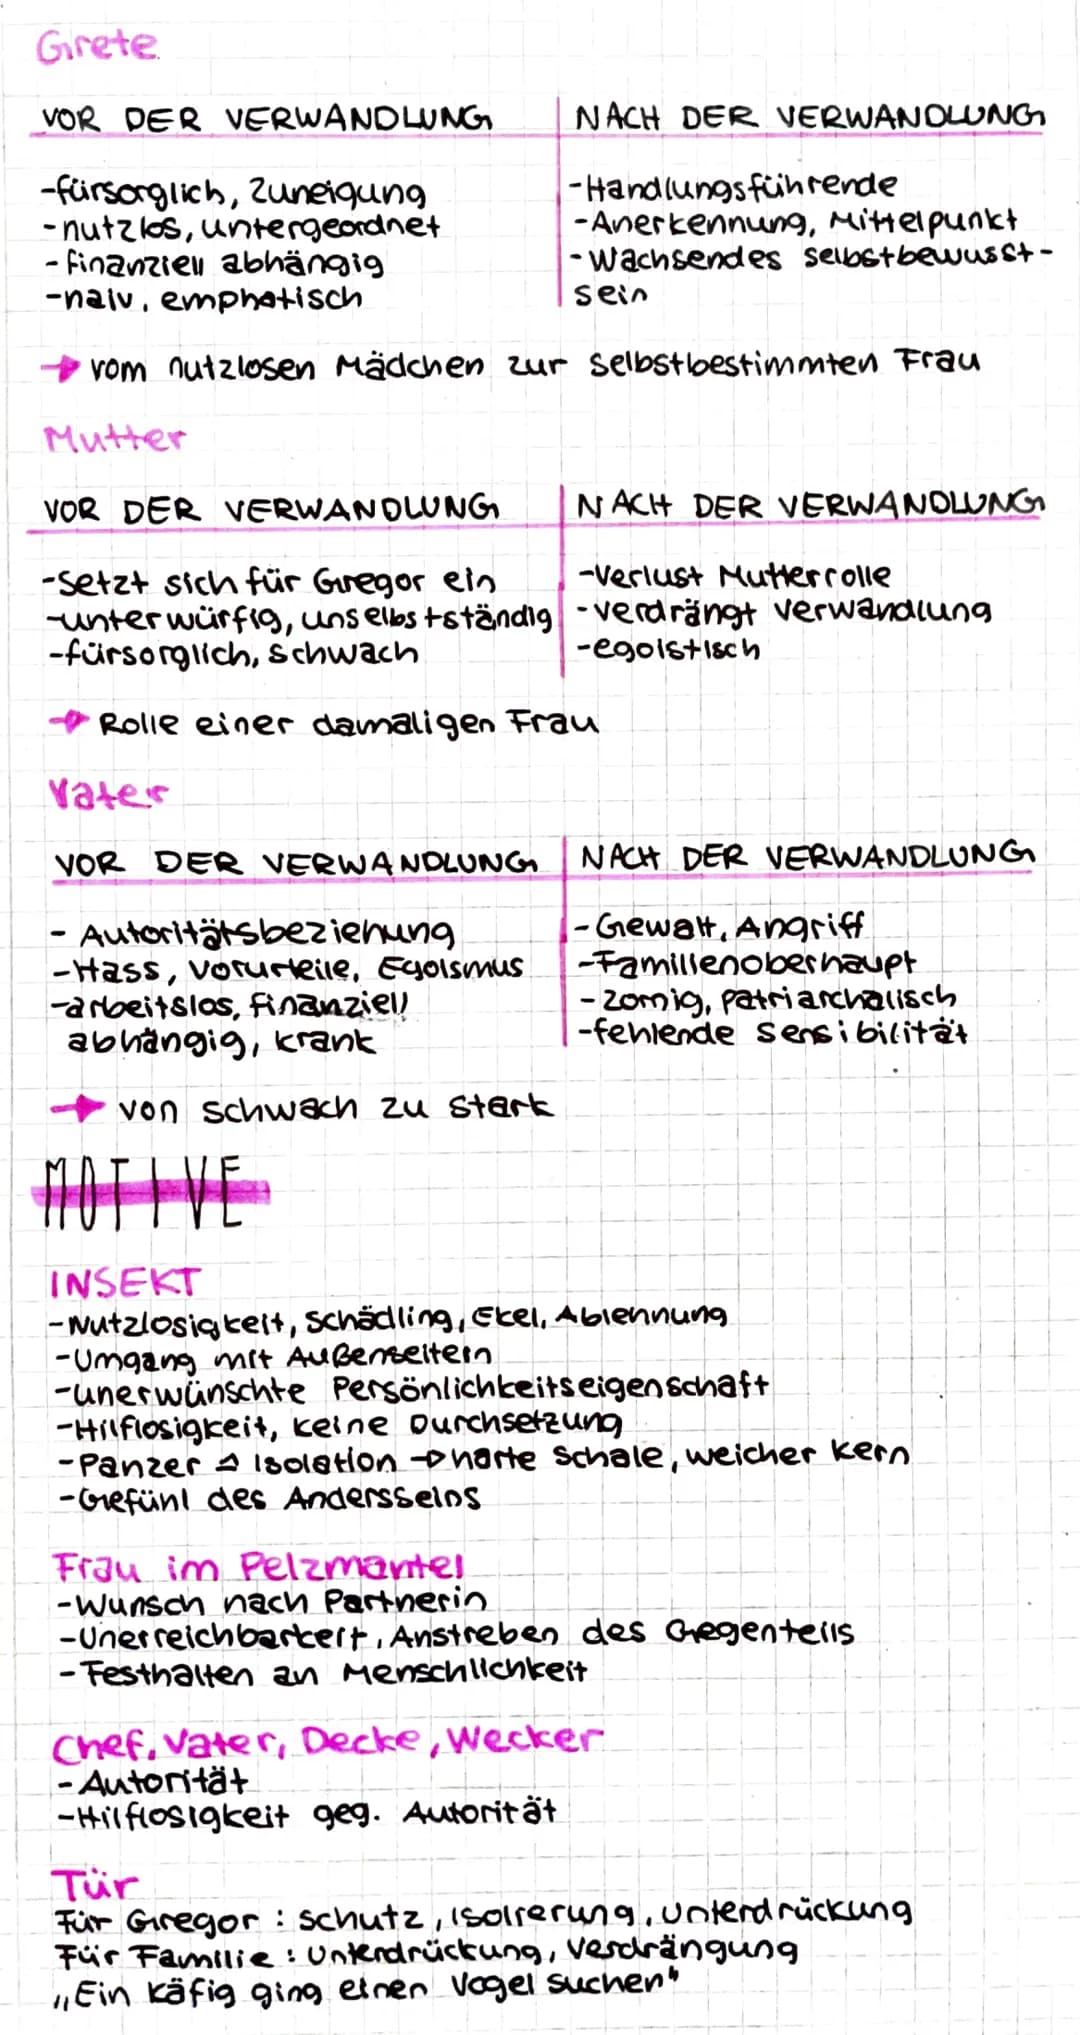 Grete
VOR DER VERWANDLUNG
NACH DER VERWANDLUNG
-fürsorglich, Zuneigung
-nutzlos, untergeordnet
-finanziell abhängig
-naiv, emphatisch
-Handlungsführende
-Anerkennung, Mittelpunkt
-Wachsendes selbstbewusst-
sein
→ vom nutzlosen Mädchen zur selbstbestimmten Frau
Mutter
VOR DER VERWANDLUNG
NACH DER VERWANDLUNG
-Setzt sich für Gregor ein
-unterwürfig, unselbstständig
-fürsorglich, schwach
-Verlust Mutterrolle
-verdrängt Verwandlung
-egoistisch
→ Rolle einer damaligen Frau
Vater
VOR DER VERWANDLUNG
NACH DER VERWANDLUNG
- Autoritätsbeziehung
-Hass, Vorurteile, Egoismus
-arbeitslos, finanziell
abhängig, krank
-Gewalt, Angriff
-Familienoberhaupt
-zornig, patriarchalisch
-fehlende Sensibilität
→ von schwach zu stark
MOTIVE
INSEKT
-Nutzlosigkeit, Schädling, Ekel, Ablehnung
-Umgang mit Außenseitern
-unerwünschte Persönlichkeitseigenschaft
-Hilflosigkeit, keine Durchsetzung
-Panzer ≙ Isolation → harte Schale, weicher Kern
-Gefühl des Andersseins
Frau im Pelzmantel
-Wunsch nach Partnerin
-Unerreichbarkeit, Anstreben des Gegenteils
-Festhalten an Menschlichkeit
Chef, Vater, Decke, Wecker
-Autorität
-Hilflosigkeit geg. Autorität
Tür
Für Gregor : Schutz, Isolierung, Unterdrückung
Für Familie : Unterdrückung, Verdrängung
„Ein Käfig ging einen Vogel suchen"